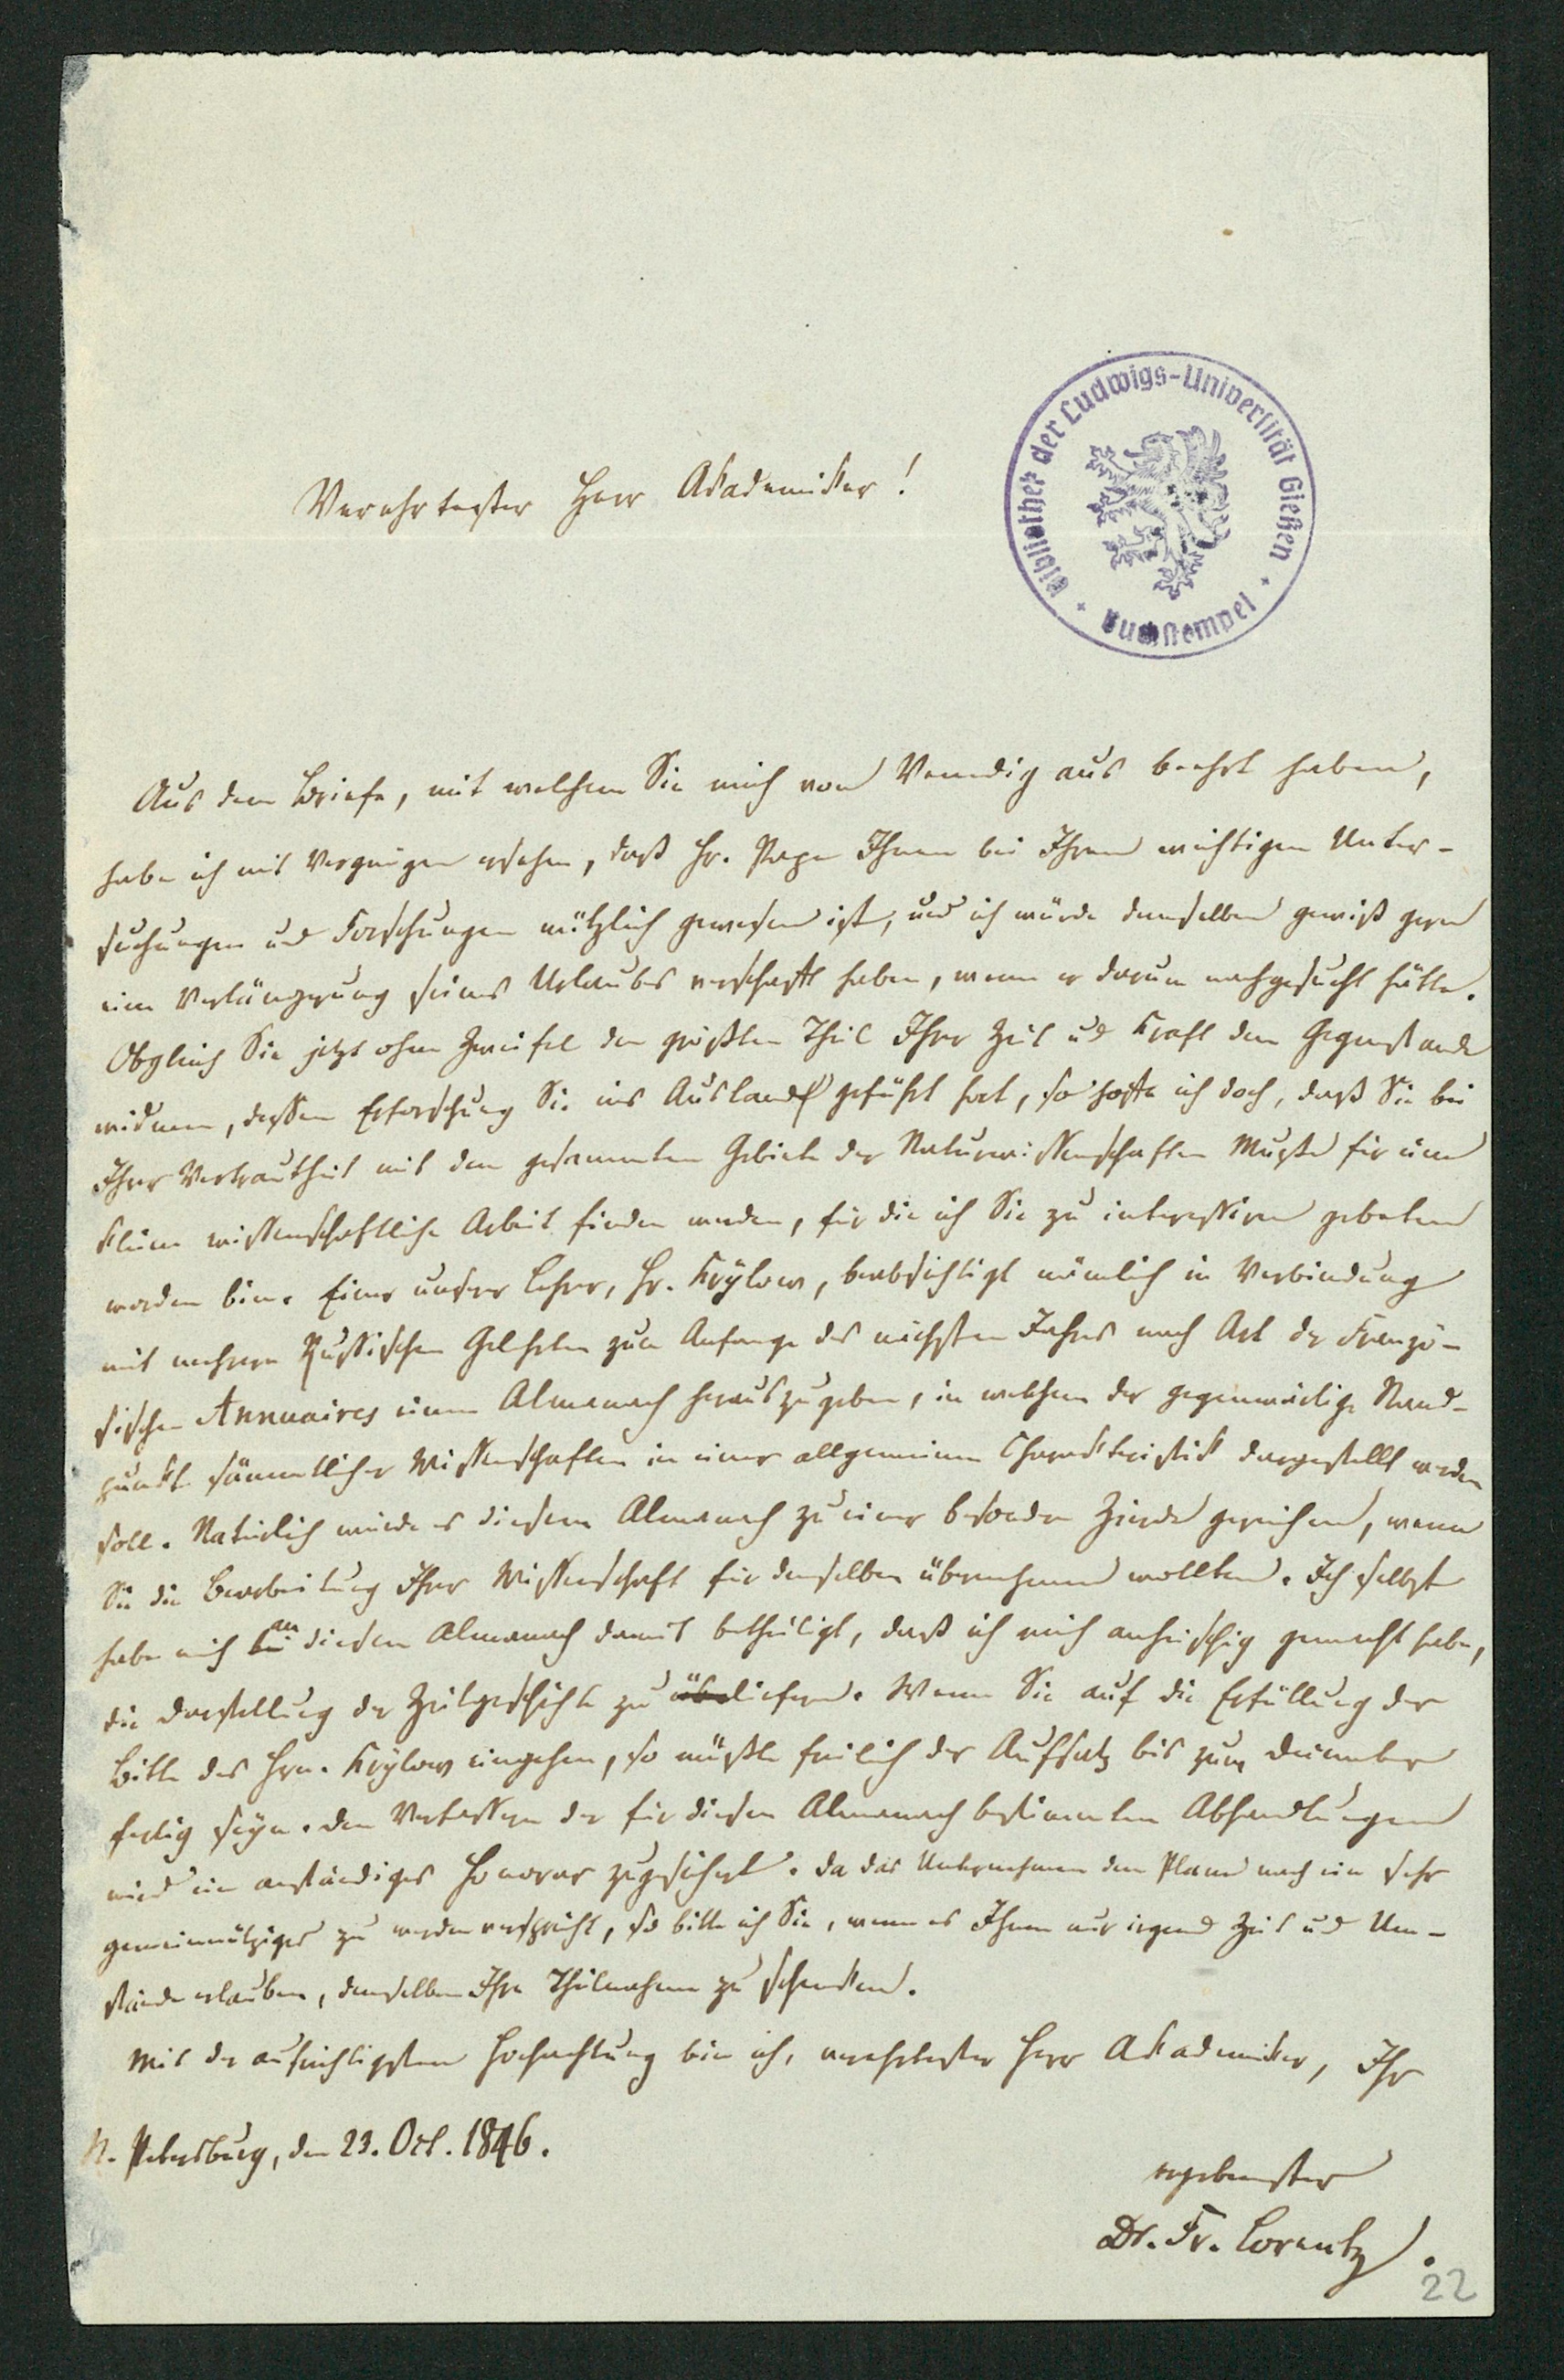 Bibliothek der Ludwigs-Universität Gießen
Buchstempel
Verehrtester Herr Akademiker!
Aus dem Briefe, mit welchem Sie mich von Venedig aus beehrt haben,
habe ich mit Vergnügen ersehen, daß Hr. Pape Ihnen bei Ihren wichtigen Unter-
suchungen und Forschungen nützlich gewesen ist, und ich würde demselben gewiß gern
eine Verlängerung seines Urlaubes verschafft haben, wenn er darum nachgesucht hätte.
Obgleich Sie jetzt ohne Zweifel den größten Theil Ihrer Zeit und Kraft dem Gegenstande
widmen, dessen Erforschung Sie ins Ausland geführt hat, so hoffe ich doch, daß Sie bei
Ihrer Vertrautheit mit dem gesammten Gebiete der Naturwissenschaften Muße für eine
kleine wissenschaftliche Arbeit finden werden, für die ich Sie zu interessiren gebeten
worden bin. Einer unsrer Lehrer, Hr. Krÿlow, beabsichtigt nämlich in Verbindung
mit mehrern Russischen Gelehrten zum Anfange des nächsten Jahres nach Art der Franzö-
sischen Annuaires einen Almanach herauszugeben, in welchem der gegenwärtige Stand-
punkt sämmtlicher Wissenschaften in einer allgemeinen Charakteristik dargestellt werden
soll. Natürlich würde es diesem Almanach zu einer besondern Zierde gereichen, wenn
Sie die Bearbeitung Ihrer Wissenschaft für denselben übernehmen wollten. Ich selbst
habe mich bei an diesem Almanach damit betheiligt, daß ich mich anheischig gemacht habe,
die Darstellung der Zeitgeschichte zu liefern. Wenn Sie auf die Erfüllung der
Bitte des Hrn. Krÿlow eingehen, so müßte freilich der Aufsatz bis zum December
fertig seyn. Den Verfassern der für diesen Almanach bestimmten Abhandlungen
wird ein anständiges Honorar zugesichert. Da das Unternehmen dem Plane nach ein sehr
gemeinnütziges zu werden verspricht, so bitte ich Sie, wenn es Ihnen nur irgend Zeit und Um-
stände erlauben, demselben Ihre Theilnahme zu schenken.
Mit der aufrichtigsten Hochachtung bin ich, verehrtester Herr Akademiker, Ihr
St. Petersburg, den 23. Oct. 1846.
ergebenster
Dr. Fr. Lorentz.
22